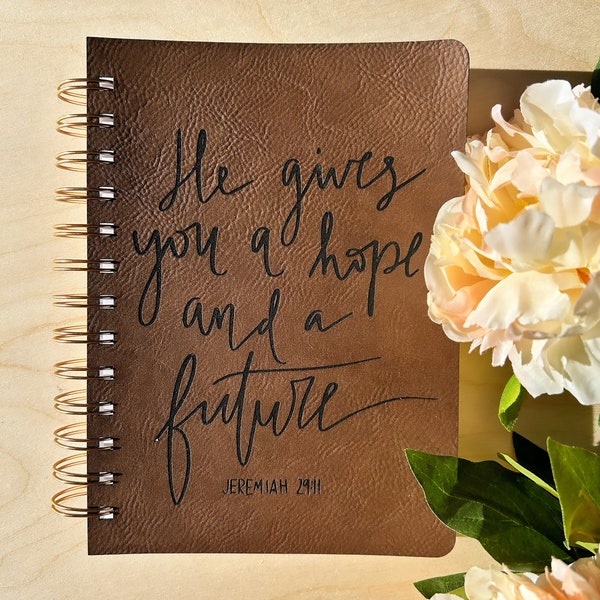 He gives
you a hope
and a
future
JEREMIAH 29:11